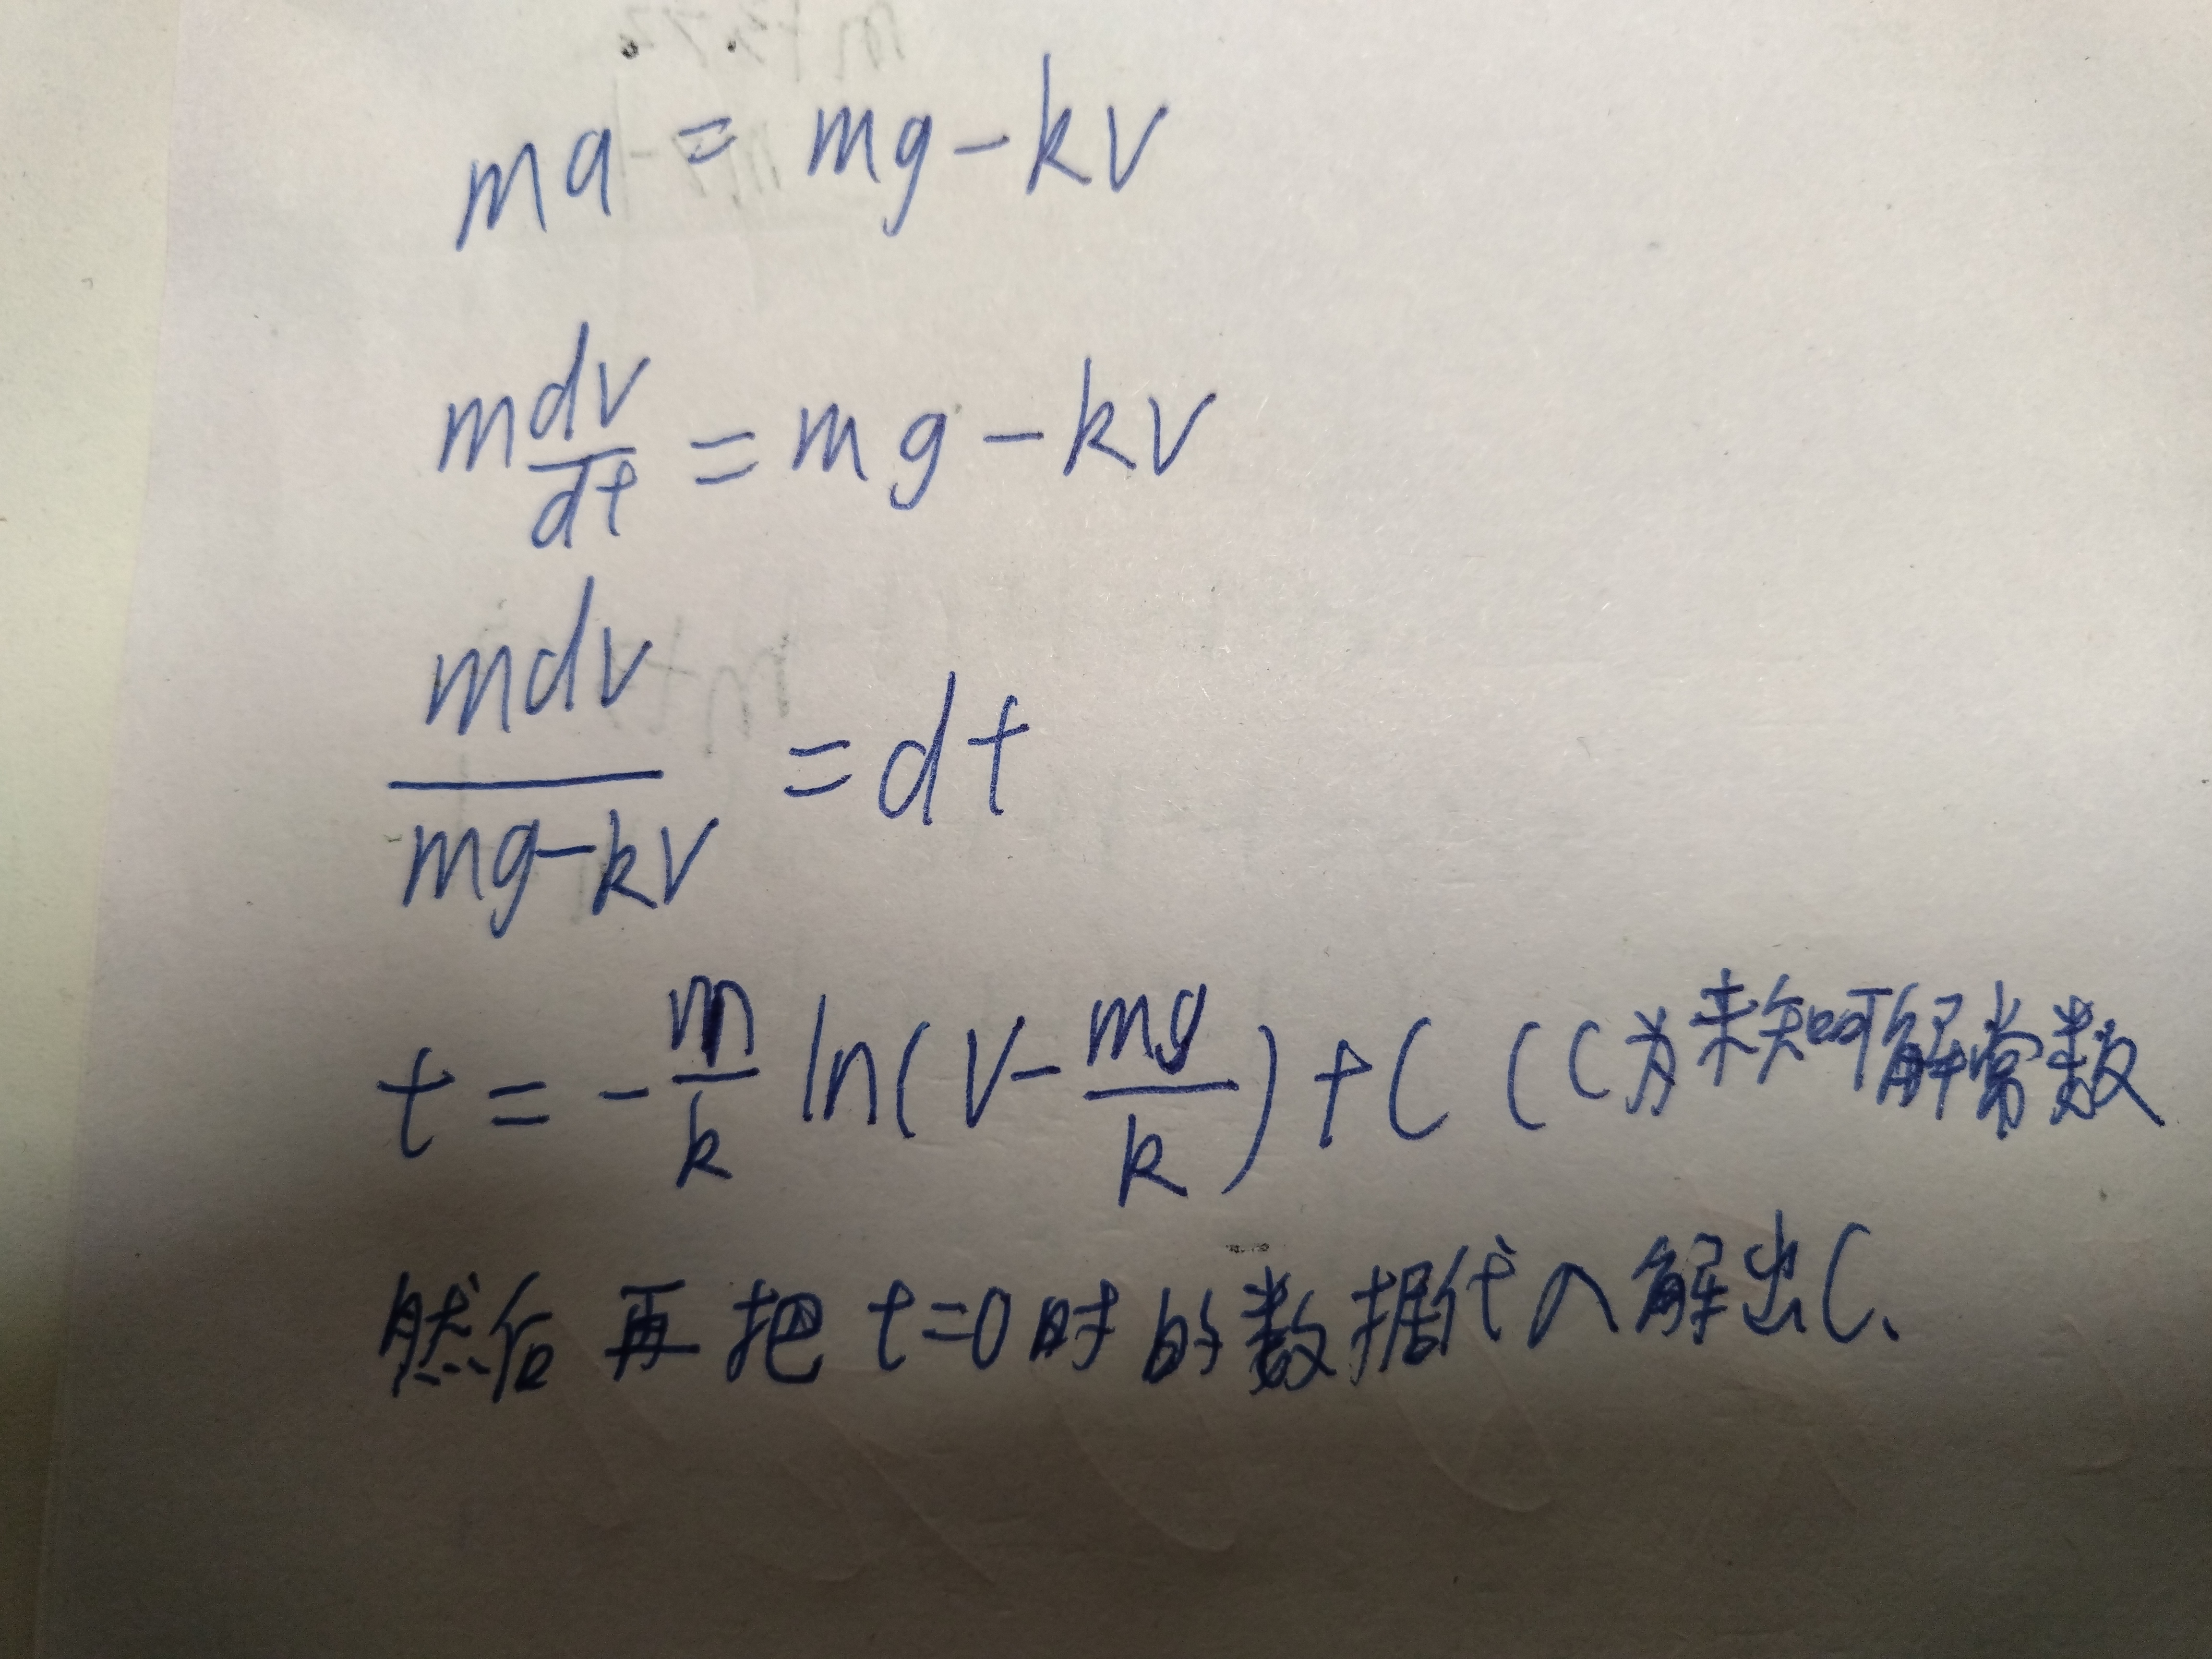 ma = mg - kv
m dv/dt = mg - kv
mdv/(mg-kv) = dt
t = - m/k ln(v - mg/k) + C (C为未知可解常数
然后再把t=0时的数据代入解出C、